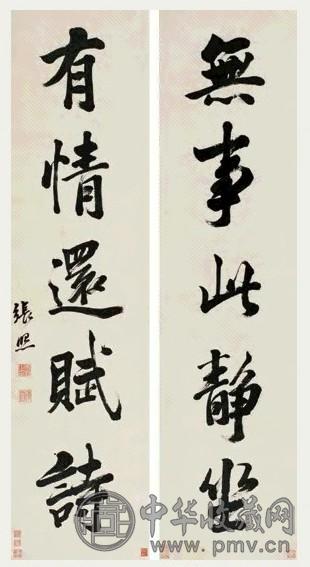 無事此靜坐
有情還賦詩
張照
中华收藏网
www.pmv.cn